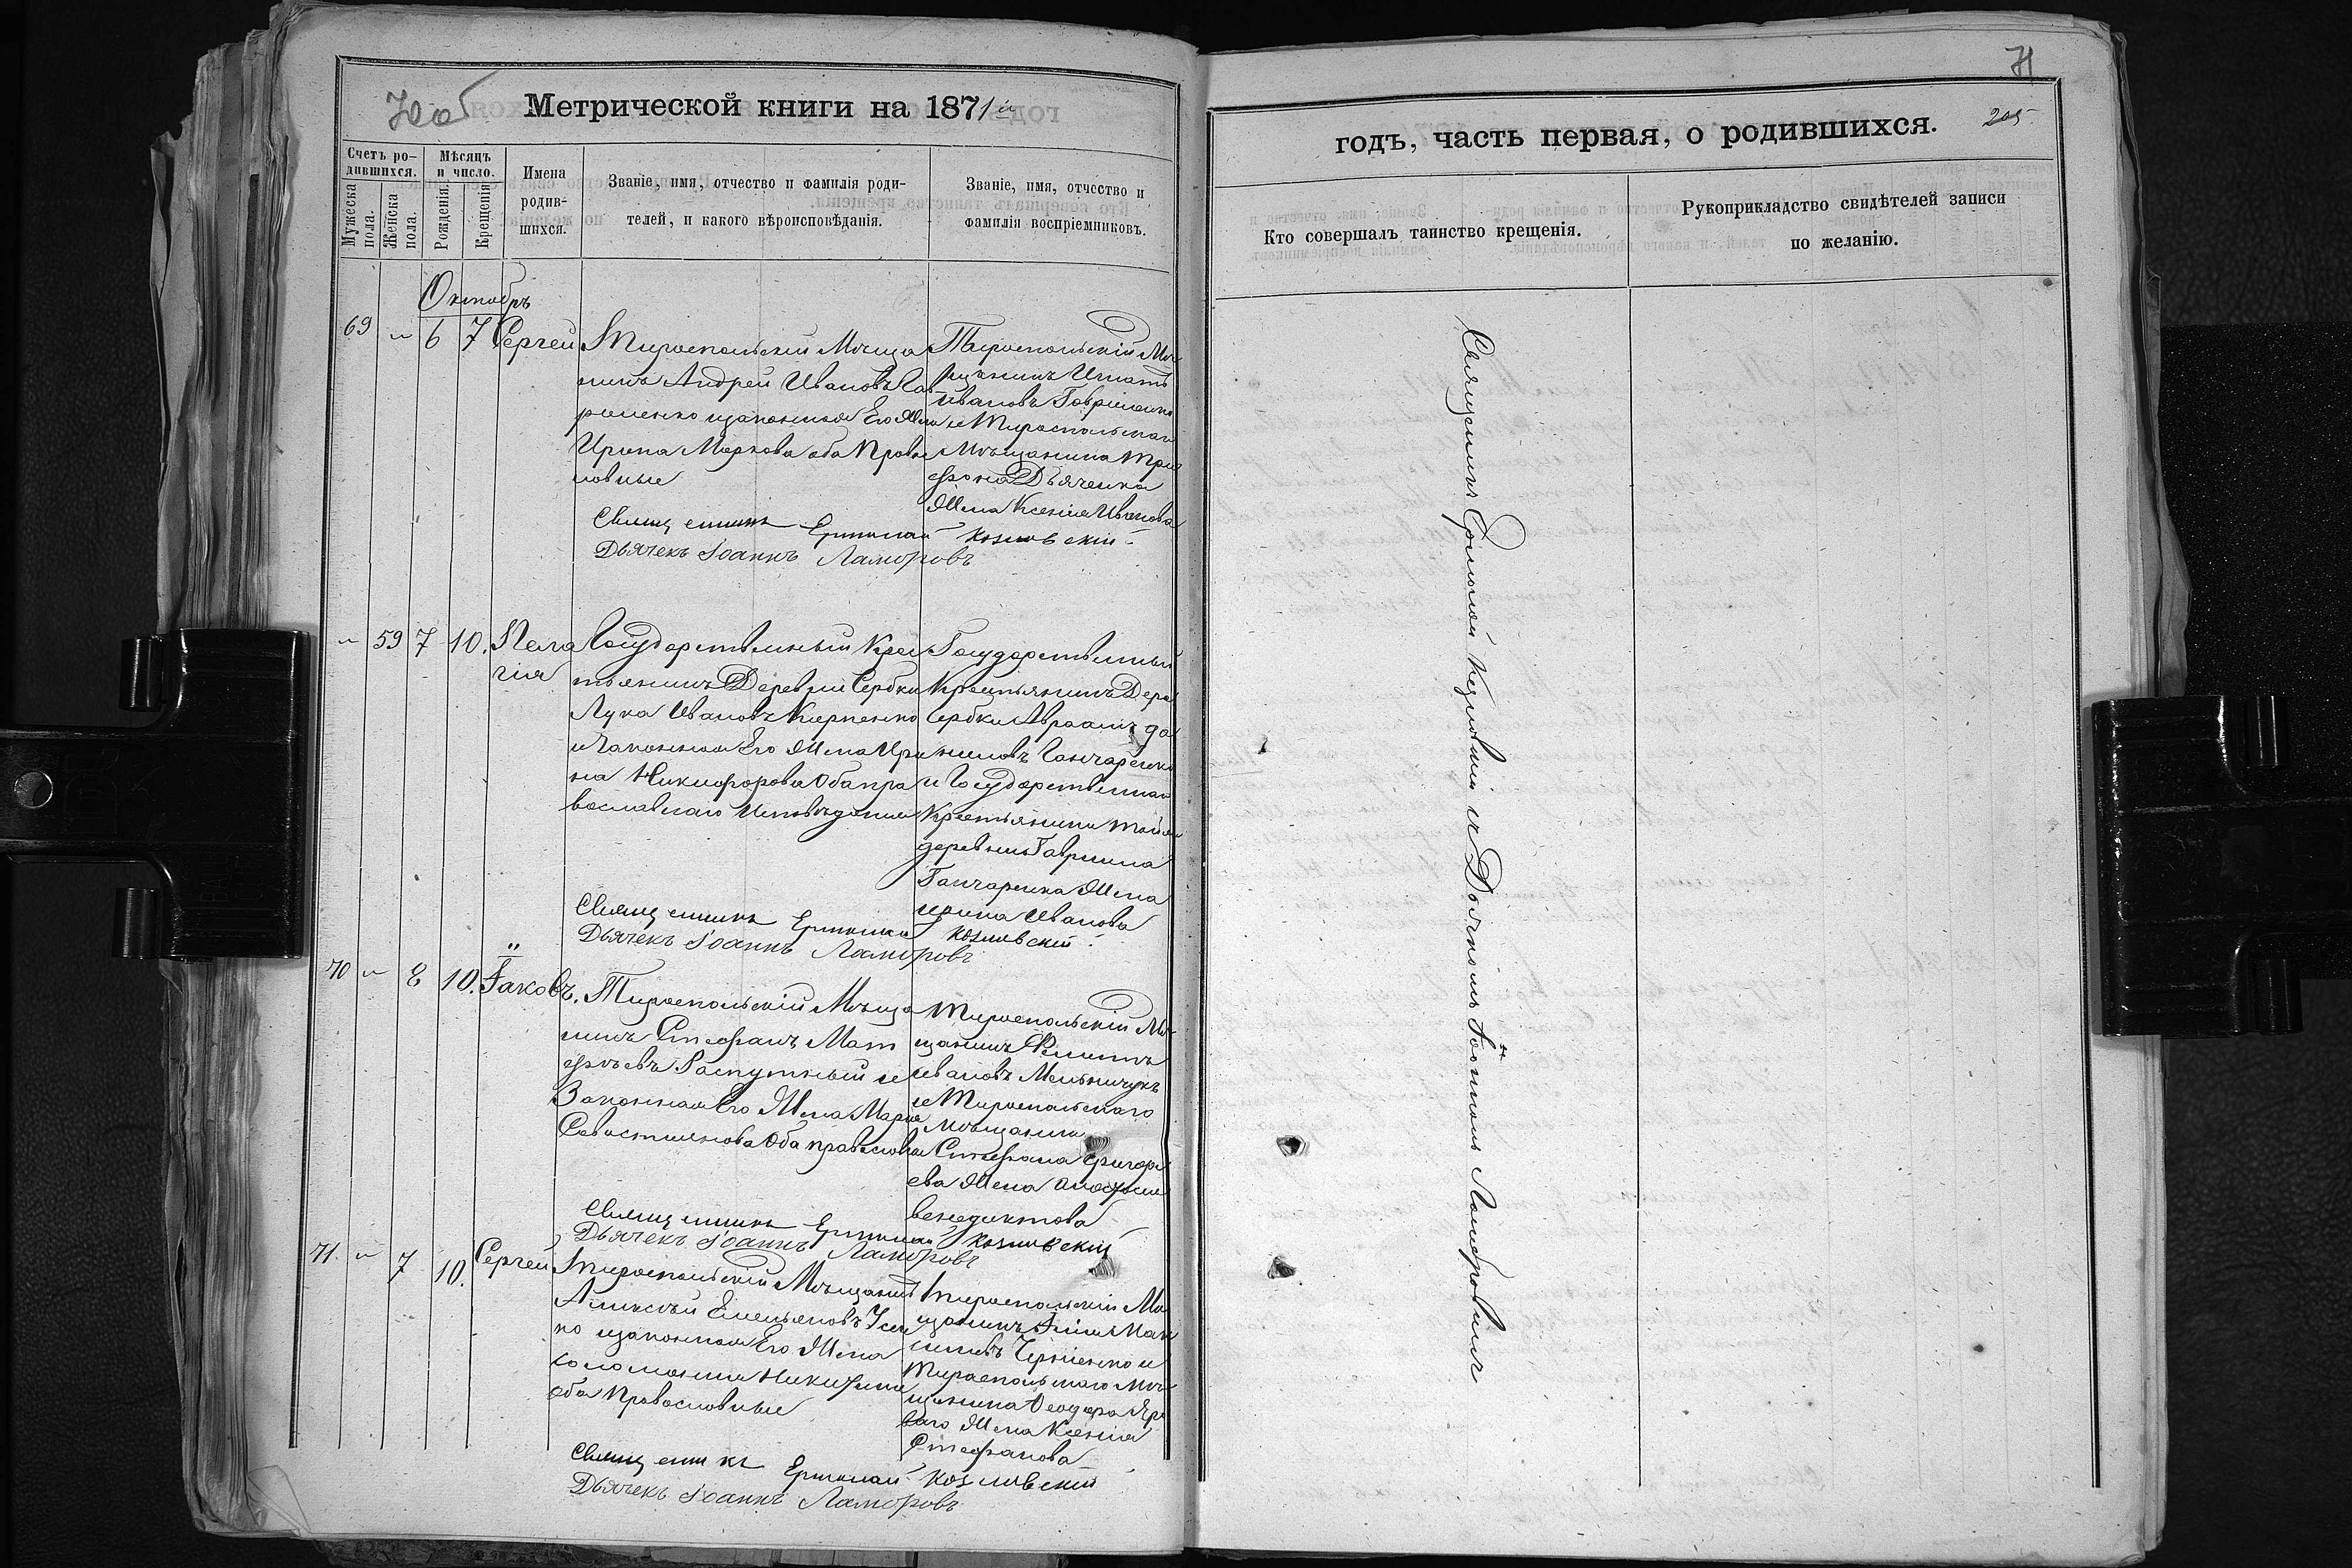 70 об
Метрической книги на 1871й
Счетъ ро-
дившихся.
Мѣсяцъ
и число.
Мужеска
пола.
Женска
пола.
Рожденія.
Крещенія
Имена
родив-
шихся.
Званіе, имя, отчество и фамилія роди-
телей, и какого вѣроисповѣданія.
Званіе, имя, отчество и
фамилія воспріемниковъ.
Октобръ
69 " 6 7 Сергей
Тироспольскій Мѣща
нинъ Андрей Ивановъ Гав
риленко изаконная Его Жена
Ирина Маркова оба Правос
ловные
Тироспольскій Мѣ
щанинъ Игнатъ
Ивановъ Гавриленко
и Тироспольскаго
Мѣщанина Три
фона Дьяченка
Жена Ксенія Иванова
Священникъ Ермолай Козловскій
Дьячекъ Іоаннъ Ламбровъ
" 59 7 10. Пела
гія
Государственный Крес
тьянинъ Деревни Сербки
Лука Ивановъ Кирпенко
и Законная Его Жена Ири
на Никифорова Оба пра
вославнаго Исповѣданія
Государственный
Крестьянинъ Дерев
Сербки Авраамъ Да
ниловъ Ганчаренко
и Государственнаго
Крестьянина той же
деревни Гавриила
Ганчаренка Жена
Ирина Иванова
Священникъ Ермолай Козловскій
Дьячекъ Іоаннъ Ламбровъ
70 " 8 10. Іаковъ.
Тироспольскій Мѣща
нинъ Стефанъ Мат
фѣевъ Распутный и
Законная Его Жена Марія
Севастиянова Оба православны
Тироспольскій Мѣ
щанинъ Филиппъ
Ивановъ Мельничукъ
и Тироспольскаго
Мѣщанина
Стефана Григорь
ева Жена
Венедиктова
Священникъ Ермолай Козловскій
Дьячекъ Іоаннъ Ламбровъ
71. " 7 10. Сергей
Тироспольскій Мѣщанинъ
Алексѣй Емельяновъ
но изаконная Его Жена
Соломония Никитина
оба Православные
Тироспольскій Мѣ
щанинъ Мак
симовъ Черненко и
Тироспольскаго Мѣ
щанина Ѳеодора
ваго Жена Ксенія
Стефанова
Священникъ Ермолай Козловскій
Дьячекъ Іоаннъ Ламбровъ
71
205
годъ, часть первая, о родившихся.
Кто совершалъ таинство крещенія.
Рукоприкладство свидѣтелей записи
по желанію.
Священникъ Ермолай Козловскій и Дьячкомъ Іоанномъ Ламбровымъ